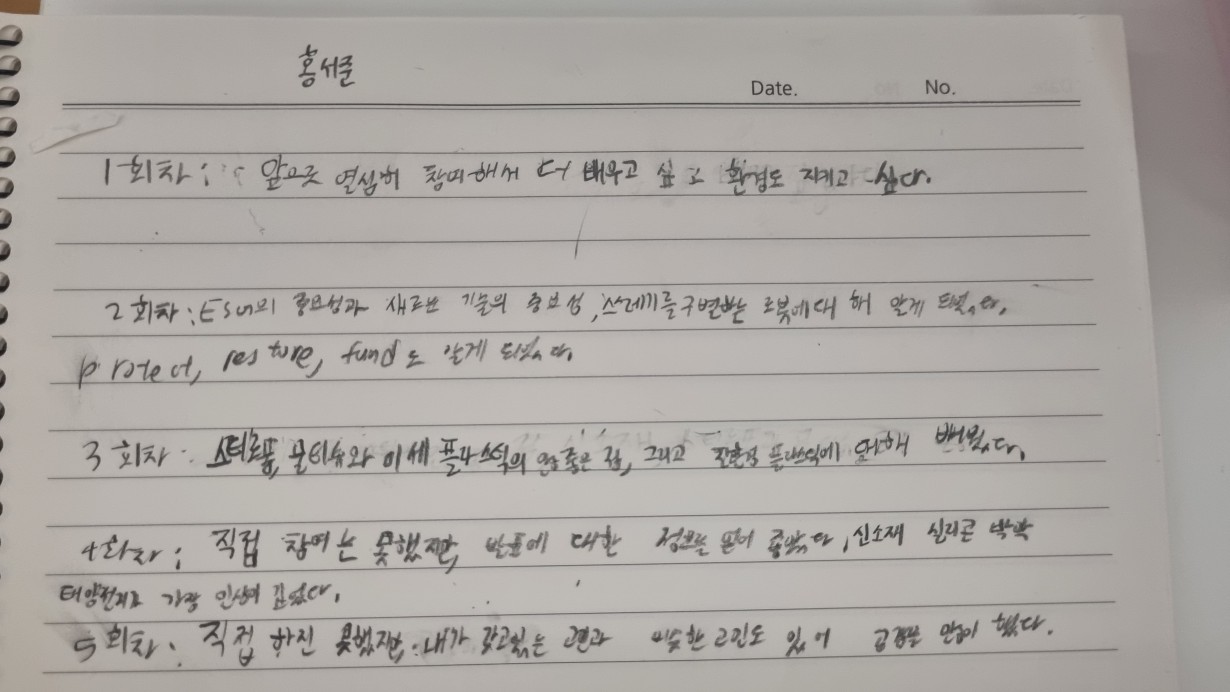 홍서준
Date. No.
1회차 : 앞으로 열심히 참여해서 더 배우고 싶고 환경도 지키고 싶다.
2회차 : ESG의 중요성과 새로운 기술의 중요성, 쓰레기를 구별하는 로봇에 대해 알게 되었다.
protect, restore, fund도 알게 되었다.
3회차 : 스티로폼, 물티슈와 미세플라스틱의 안 좋은 점, 그리고 플라스틱에 대해 배웠다.
4회차 : 직접 참여는 못했지만, 발표에 대한 정보를 얻어 좋았다, 신소재 실리콘 박막
태양전지가 가장 인상이 깊었다.
5회차 : 직접 하진 못했지만, 내가 갖고있는 고민과 비슷한 고민도 있어 공감을 많이 했다.